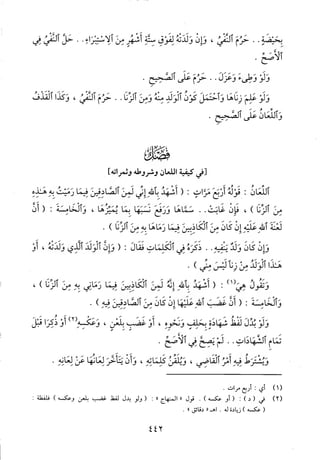 بِحَيْضَةٍ.. حَرُمَ ٱلنَّفْيُ ، وَإِنْ وَلَدَتْهُ لِفَوْقِ سِتَّةِ أَشْهُرٍ مِنَ ٱلِٱسْتِبْرَاءِ.. حَلَّ ٱلنَّفْيُ فِي
ٱلأَصَحِّ .
وَلَوْ وَطِىءَ وَعَزَلَ.. حَرُمَ عَلَى ٱلصَّحِيحِ .
وَلَوْ عَلِمَ زِنَاهَا وَٱحْتَمَلَ كَوْنُ ٱلْوَلَدِ مِنْهُ وَمِنَ ٱلزِّنَا.. حَرُمَ ٱلنَّفْيُ ، وَكَذَا ٱلْقَذْفُ
وَٱللِّعَانُ عَلَى ٱلصَّحِيحِ .
فَصْلٌ
[في كيفية اللعان وشروطه وثمراته]
ٱللِّعَانُ : قَوْلُهُ أَرْبَعَ مَرَّاتٍ : ( أَشْهَدُ بِٱللهِ إِنِّي لَمِنَ ٱلصَّادِقِينَ فِيمَا رَمَيْتُ بِهِ هَذِهِ
مِنَ ٱلزِّنَا ) ، فَإِنْ غَابَتْ.. سَمَّاهَا وَرَفَعَ نَسَبَهَا بِمَا يُمَيِّزُهَا ، وَٱلْخَامِسَةَ : ( أَنَّ
لَعْنَةَ ٱللهِ عَلَيْهِ إِنْ كَانَ مِنَ ٱلْكَاذِبِينَ فِيمَا رَمَاهَا بِهِ مِنَ ٱلزِّنَا ) .
وَإِنْ كَانَ وَلَدٌ يَنْفِيهِ.. ذَكَرَهُ فِي ٱلْكَلِمَاتِ فَقَالَ : ( وَإِنَّ ٱلْوَلَدَ ٱلَّذِي وَلَدَتْهُ ، أَوْ
هَذَا ٱلْوَلَدَ مِنْ زِناً لَيْسَ مِنِّي ) .
وَتَقُولُ هِيَ(١) : ( أَشْهَدُ بِٱللهِ إِنَّهُ لَمِنَ ٱلْكَاذِبِينَ فِيمَا رَمَانِي بِهِ مِنَ ٱلزِّنَا ) ،
وَٱلْخَامِسَةَ : ( أَنَّ غَضَبَ ٱللهِ عَلَيْهَا إِنْ كَانَ مِنَ ٱلصَّادِقِينَ فِيهِ ) .
وَلَوْ بُدِّلَ لَفْظُ شَهَادَةٍ بِحَلِفٍ وَنَحْوِهِ ، أَوْ غَضَبٌ بِلَعْنٍ ، وَعَكْسُهُ(٢) أَوْ ذُكِرَا قَبْلَ
تَمَامِ ٱلشَّهَادَاتِ.. لَمْ يَصِحَّ فِي ٱلأَصَحِّ .
وَيُشْتَرَطُ فِيهِ أَمْرُ ٱلْقَاضِي ، وَيُلَقِّنُ كَلِمَاتِهِ ، وَأَنْ يَتَأَخَّرَ لِعَانُهَا عَنْ لِعَانِهِ .
(١) أي : أربع مرات .
(٢) في (د) : ( أو عكسه ) . قول « المنهاج » : ( ولو بدل لفظ غضب بلعن وعكسه ) فلفظة :
( عكسه ) زيادة له . اهـ « دقائق » .
٤٤٢